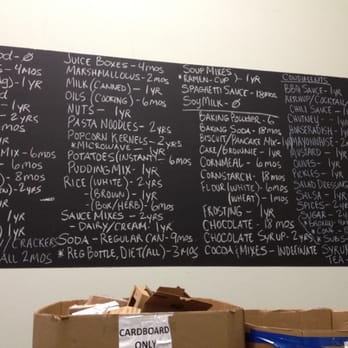 od - Ø
- 4mos
g) - 1yr
- 1yr
MIX - 6mos
- 8mos
- 2yrs
1yr
1yr
/CRACKERS
ALL 2MOS
JUICE BOXES - 4mos
MARSHMALLOWS - 2mos
MILK (CANNED) - 1yr
OILS (COOKING) - 6mos
NUTS - 1yr
PASTA NOODLES - 2yrs
POPCORN KERNELS - 2yrs
*MICROWAVE - 1yr
POTATOES (INSTANT) - 6mos
PUDDING MIX - 1yr
RICE (WHITE) - 2yrs
(BROWN) - 1yr
(BOX/HERB) - 6mos
SAUCE MIXES - 2yrs
- DAIRY/CREAM - 1yr
SODA - REGULAR CAN - 9mos
*REG BOTTLE, DIET (ALL) - 3mos
SOUP MIXES
*RAMEN-CUP) - 1yr
SPAGHETTI SAUCE - 18mos
SOYMILK - Ø
BAKING POWDER - 6
BAKING SODA - 18mos
BISCUIT/PANCAKE MIX
CAKE/BROWNIE - 1yr
CORNMEAL - 6mos
CORNSTARCH - 18mos
FLOUR (WHITE) - 6mos
(WHEAT) - 1mos
FROSTING - 1yr
CHOCOLATE - 18mos
CHOCOLATE SYRUP - 2yrs
COCOA MIXES - INDEFINATE
CONDIMENTS
BBQ SAUCE - 1yr
KETCHUP/COCKTAIL
CHILI SAUCE
CHUTNEY -
HORSERADISH
MAYONNAISE
MUSTARD -
PICKLES -
SALAD DRESSING
SALSA - 1yr
SPICES - 2yrs
SUGAR - 2yrs
SUBS
SYRUP
TEA
CARDBOARD
ONLY